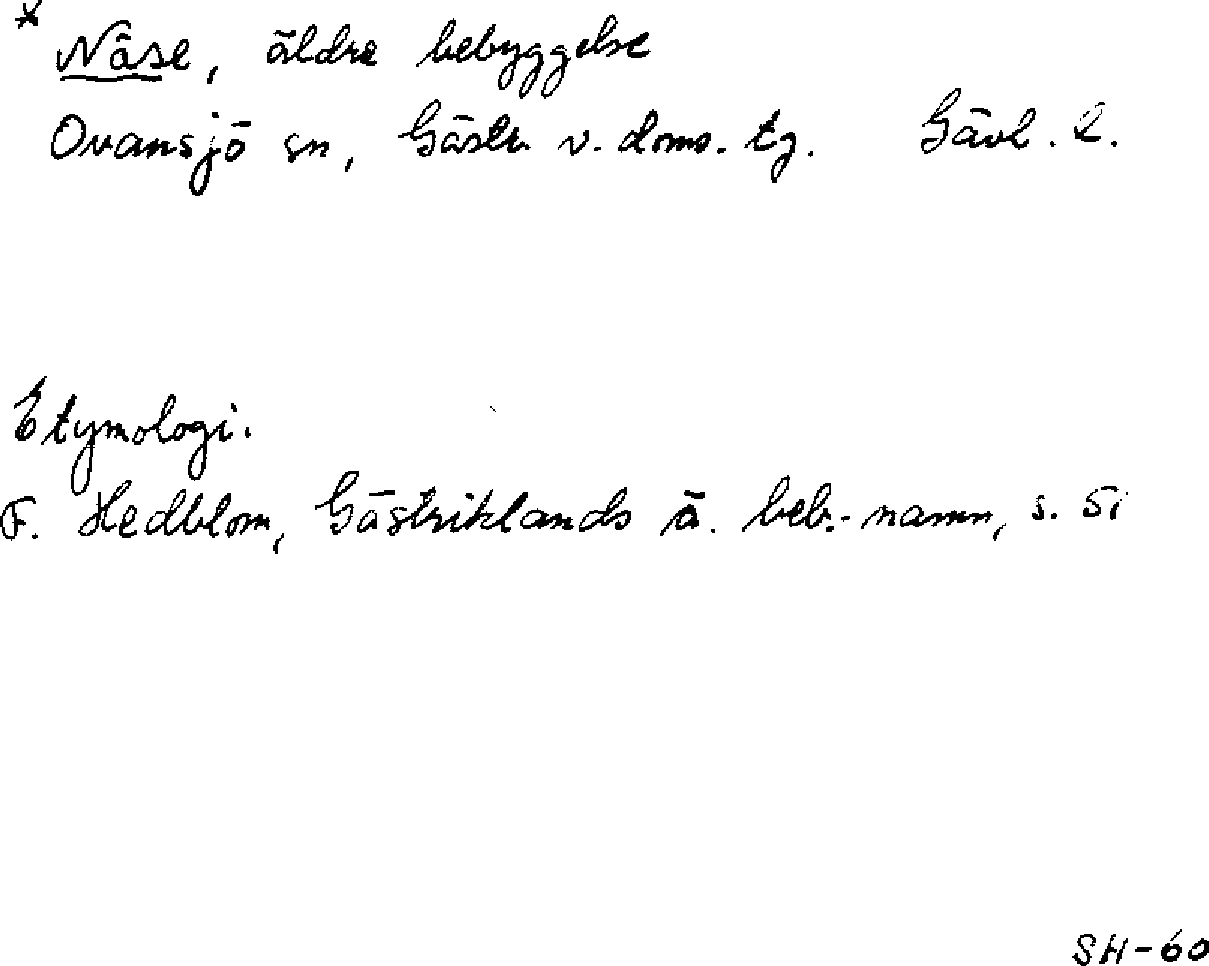 * Näse, äldre bebyggelse
Ovansjö sn, Gästr. v. doms. tg. Gävl. l.
Etymologi.
F. Hedblom, Gästriklands ä. bebr.- namn, s. 51
SH-60